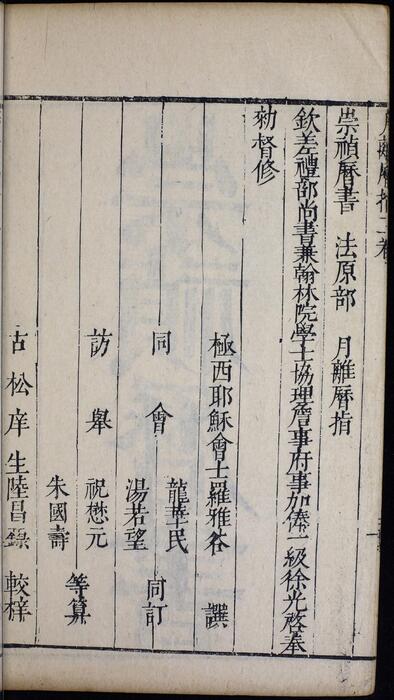 月離曆指二卷
崇禎曆書 法原部 月離曆指
欽差禮部尚書兼翰林院學士協理詹事府事加俸一級徐光啓奉
勑督修
極西耶穌會士羅雅谷 譔
龍華民
同會 同訂
湯若望
祝懋元
訪舉 等算
朱國壽
古松庠生陸昌 較梓